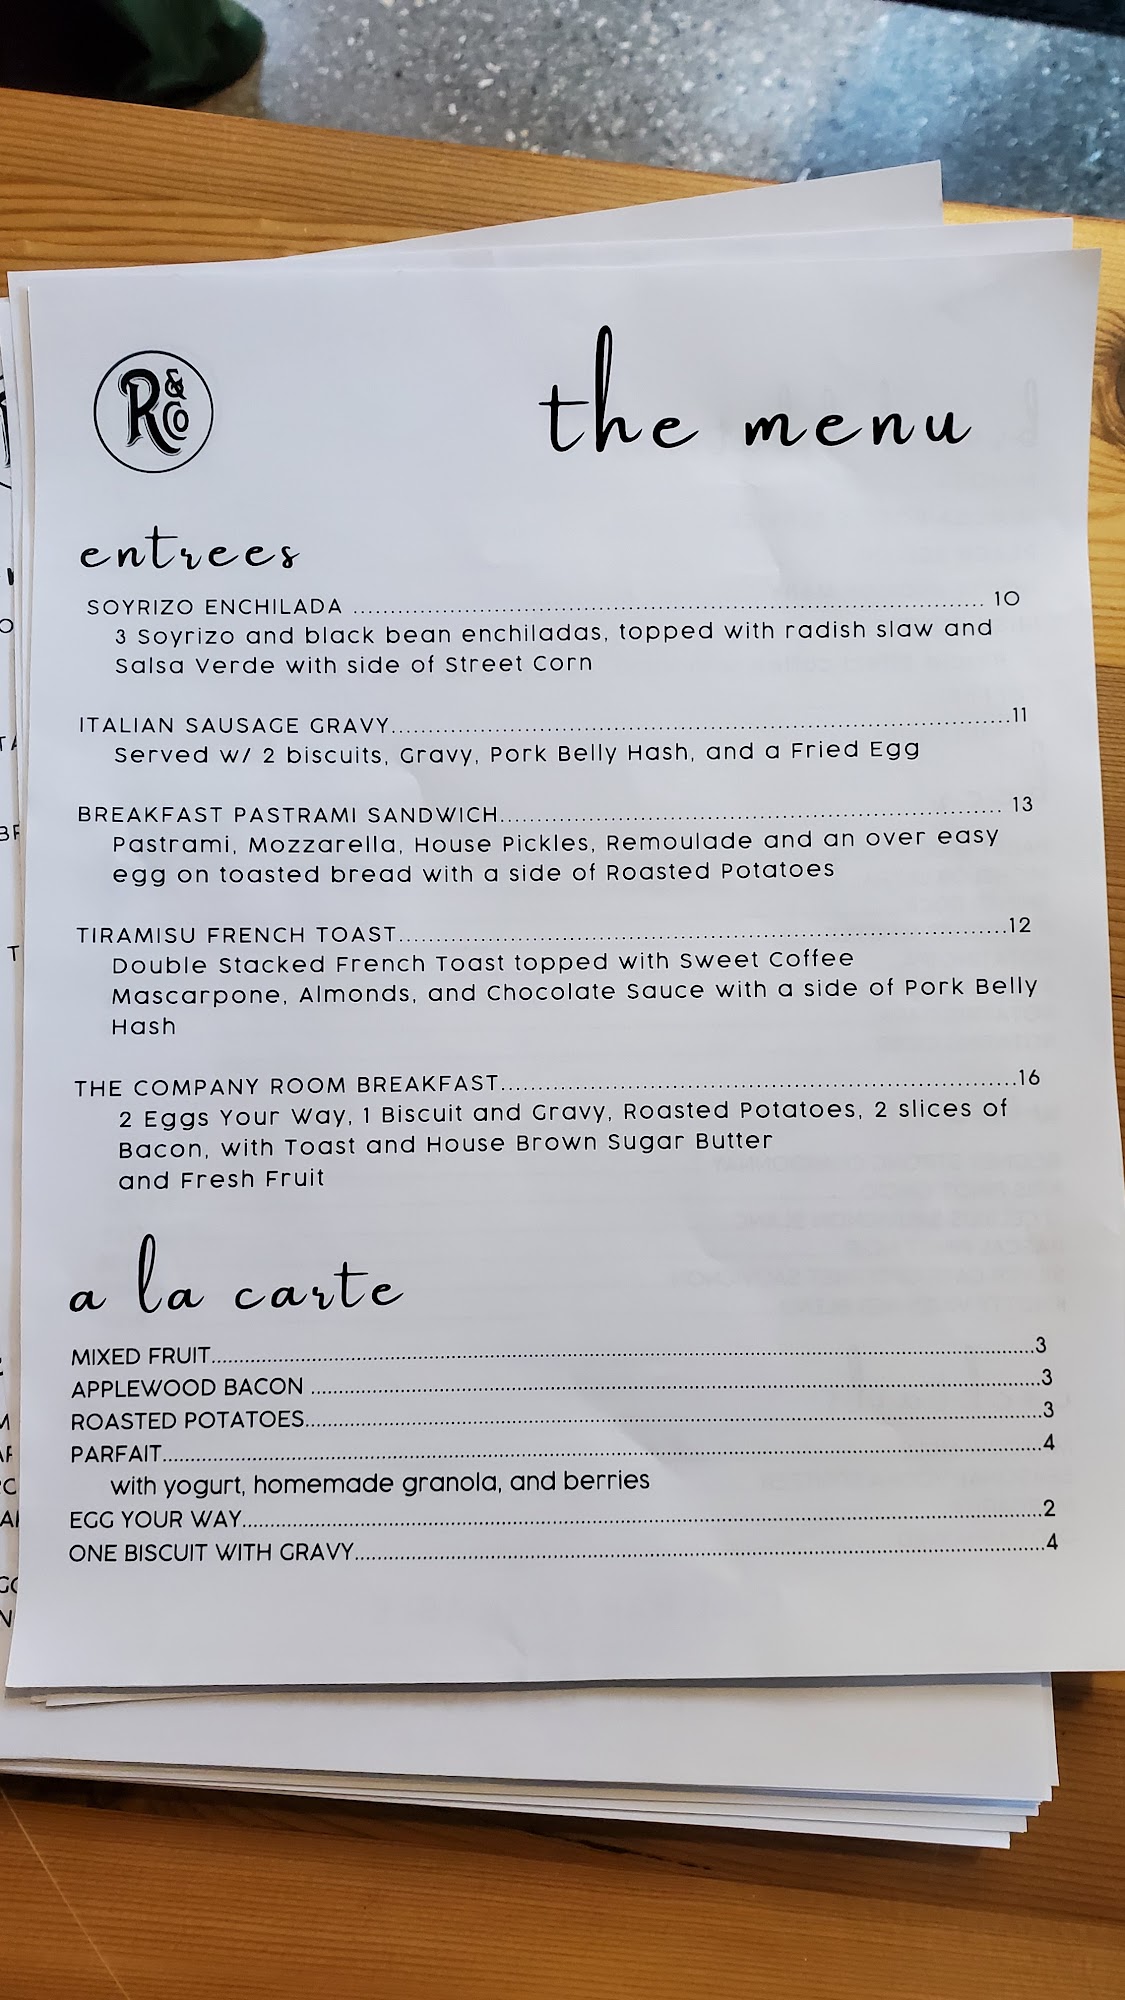 R&Co
the menu
entrees
SOYRIZO ENCHILADA ........ 10
3 Soyrizo and black bean enchiladas, topped with radish slaw and
Salsa Verde with side of Street Corn
ITALIAN SAUSAGE GRAVY........11
Served w/ 2 biscuits, Gravy, Pork Belly Hash, and a Fried Egg
BREAKFAST PASTRAMI SANDWICH........ 13
Pastrami, Mozzarella, House Pickles, Remoulade and an over easy
egg on toasted bread with a side of Roasted Potatoes
TIRAMISU FRENCH TOAST........12
Double Stacked French Toast topped with Sweet Coffee
Mascarpone, Almonds, and Chocolate Sauce with a side of Pork Belly
Hash
THE COMPANY ROOM BREAKFAST........16
2 Eggs Your Way, 1 Biscuit and Gravy, Roasted Potatoes, 2 slices of
Bacon, with Toast and House Brown Sugar Butter
and Fresh Fruit
a la carte
MIXED FRUIT........3
APPLEWOOD BACON ........3
ROASTED POTATOES........3
PARFAIT........4
with yogurt, homemade granola, and berries
EGG YOUR WAY........2
ONE BISCUIT WITH GRAVY........4